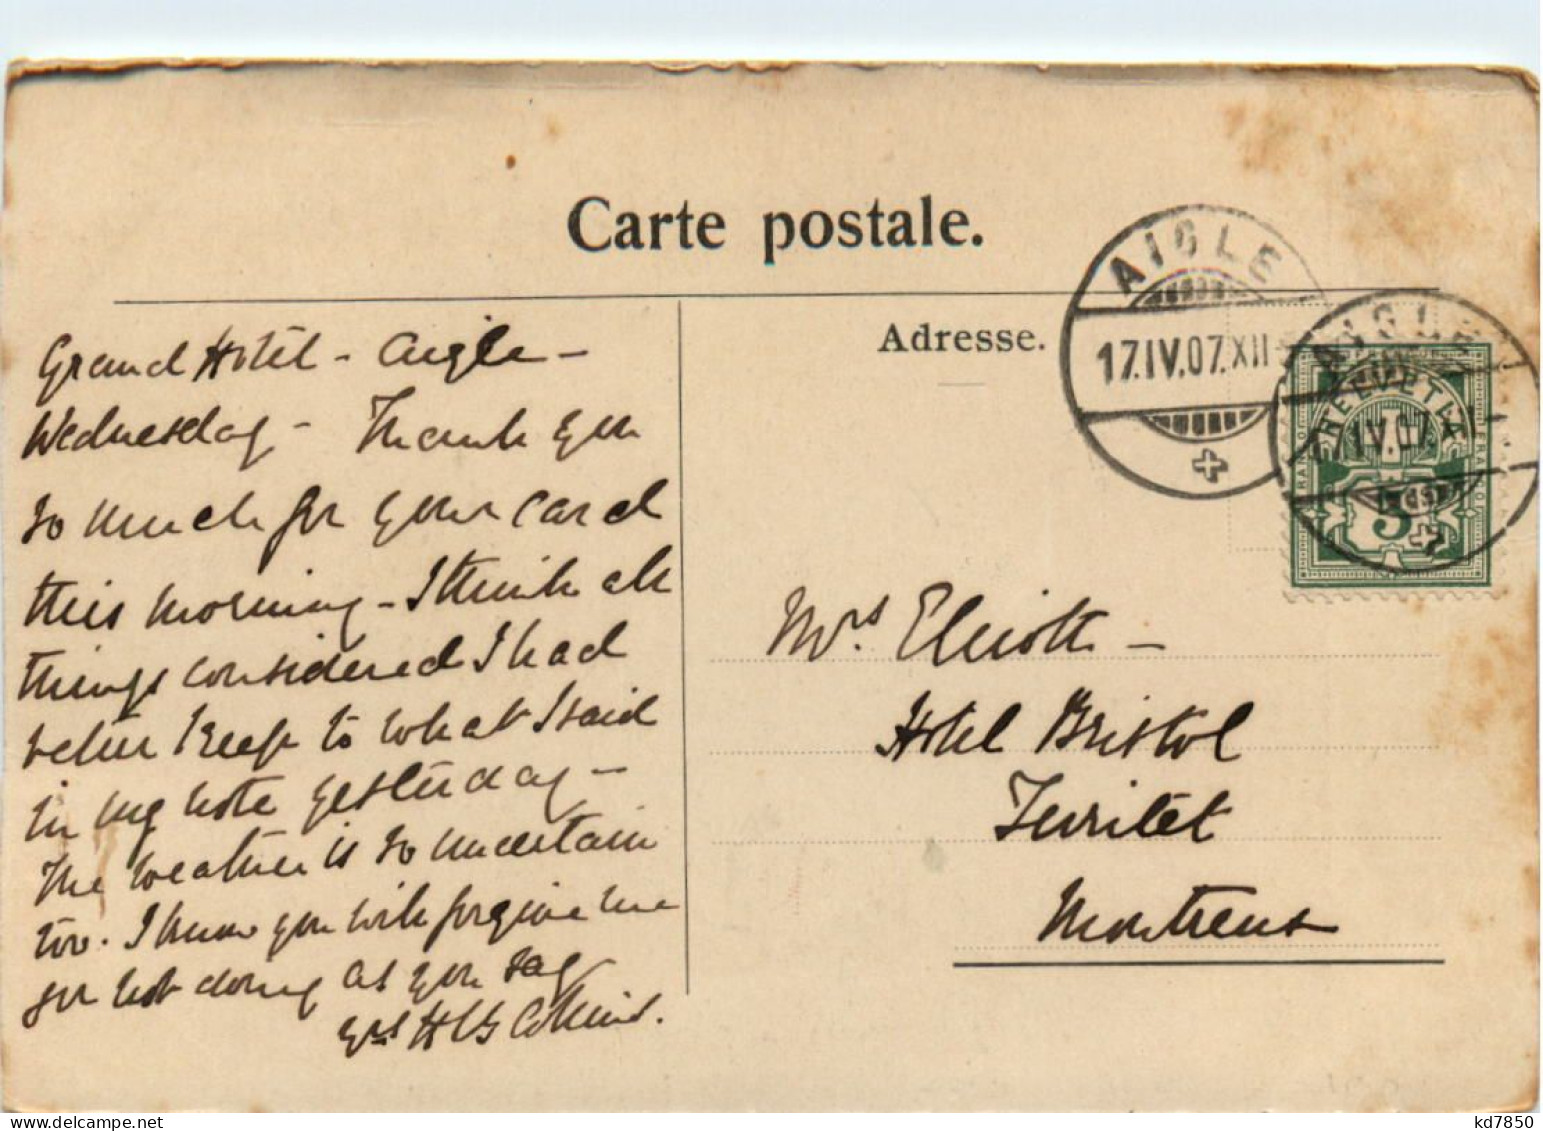 Carte postale.
Adresse.
AIGLE
17.IV.07.XII
AIGLE
HELVETIA
5
Grand Hotel - Aigle -
Wednesday - Thank you
so much for your card
this morning - I think all
things considered I had
better keep to what I said
in my note yesterday -
The weather is so uncertain
too. I know you will forgive me
for not doing as you say
Yrs H
Mrs. Elliott -
Hotel Bristol
Territet
Montreux
kd7850